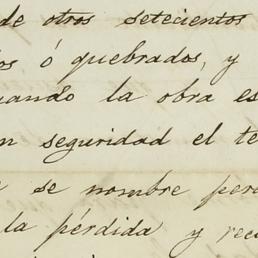 de otros setecientos
os ó quebrados, y
uando la obra es
n seguridad el te
se nombre per
la pérdida y rec